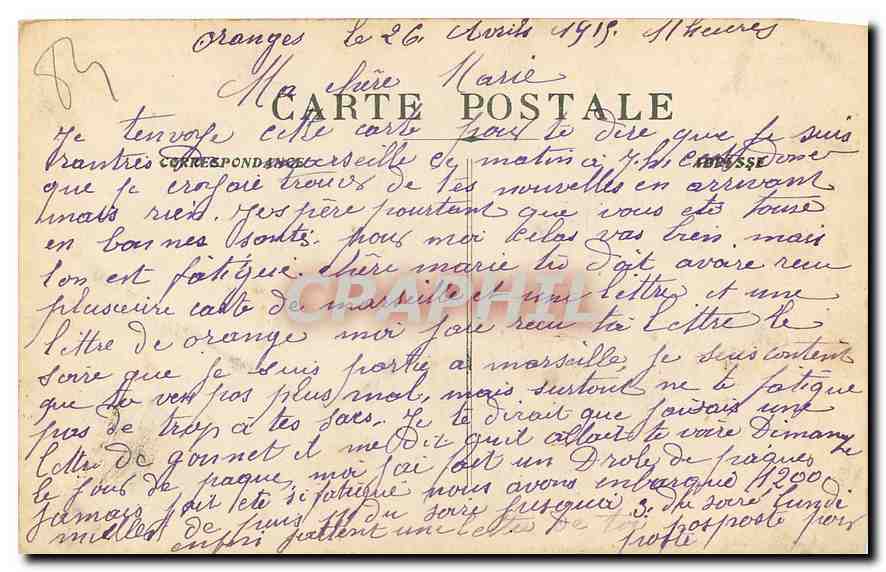 Oranges le 26 Avrils 1915. 11 heures
Ma chère Marie
CARTE POSTALE
Je tenvoye cette carte pour te dire que je suis
rantrés de marseille ce matin à 7 h. cart donc
CORRESPONDANCE ADRESSE
que je croyaie trouvés de tes nouvelles en arrivant
mais rien. Jespère pourtant que vous ete touse
en bonnes santé. pour moi celas vas bien. mais
lon est fatigué. chère marie tu doit avoire reçu
plusieure carte de marseille et une lettre et une
lettre de orange moi jaie reçu ta lettre le
soire que je suis partie a marseille, je suis content
que tu vas pas plus mal, mais surtout ne te fatigue
pas de trop à tes sacs. Je te dirait que javais une
lettre de gonnet il me dit quil allait te voire Dimanche
le jour de paque, moi jai fait un Drole de paques
jamais fait ete si fatigué nous avons enbarqué 1200
milles de puis 11 du soire jusqua 3. du soire lundi
enfin jattent une lettre de toi pasposte pour
poste
84
CPAPHIL